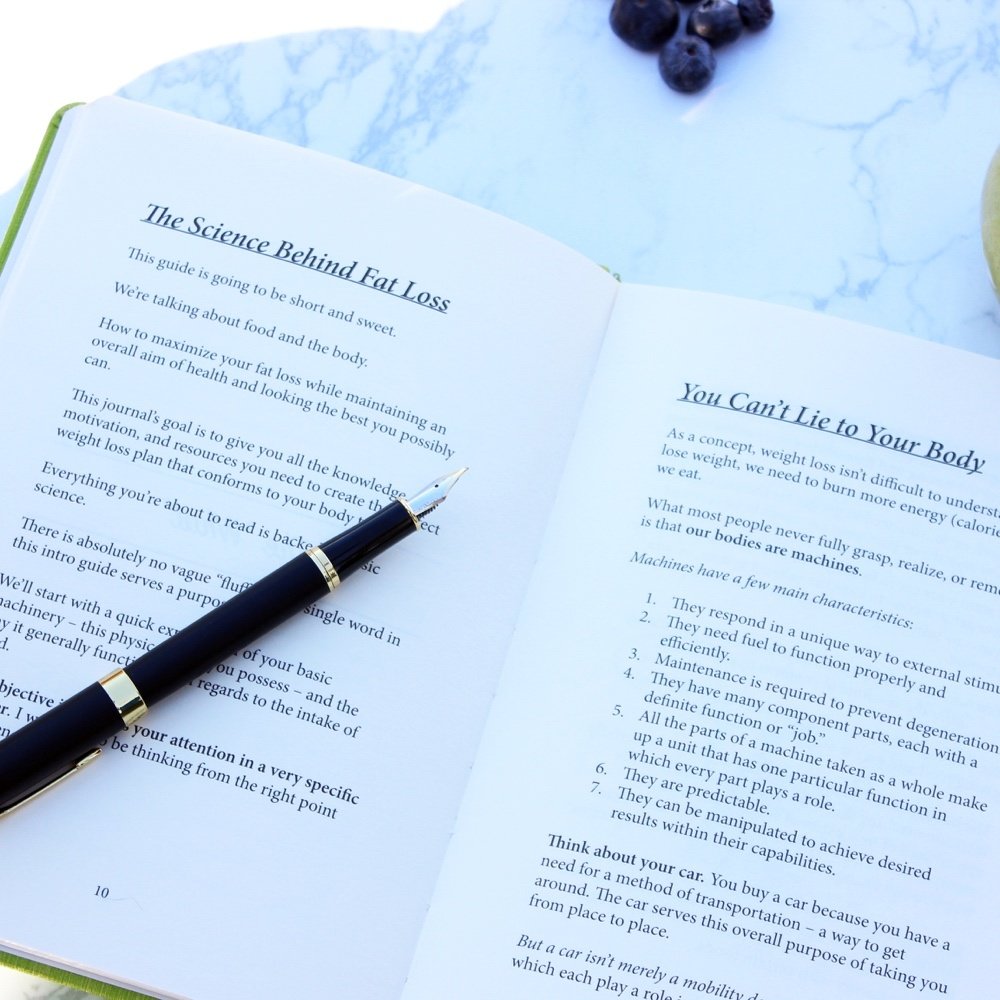 The Science Behind Fat Loss
This guide is going to be short and sweet.
We're talking about food and the body.
How to maximize your fat loss while maintaining an
overall aim of health and looking the best you possibly
can.
This journal's goal is to give you all the knowledge,
motivation, and resources you need to create the
weight loss plan that conforms to your body
Everything you're about to read is
science.
There is absolutely no vague
this intro guide serves a
single word in
We'll start with a quick
of your basic
– this
you possess – and the
it generally
regards to the intake of
I
your attention in a very specific
be thinking from the right point
10
You Can't Lie to Your Body
As a concept, weight loss isn't difficult to
lose weight, we need to burn more energy
we eat.
What most people never fully grasp, realize, or
is that our bodies are machines.
Machines have a few main characteristics:
1. They respond in a unique way to external
2. They need fuel to function properly and
efficiently.
3. Maintenance is required to prevent degeneration
4. They have many component parts, each with a
definite function or “job.”
5. All the parts of a machine taken as a whole make
up a unit that has one particular function in
which every part plays a role.
6. They are predictable.
7. They can be manipulated to achieve desired
results within their capabilities.
Think about your car. You buy a car because you have a
need for a method of transportation – a way to get
around. The car serves this overall purpose of taking you
from place to place.
But a car isn't merely a mobility
which each play a role